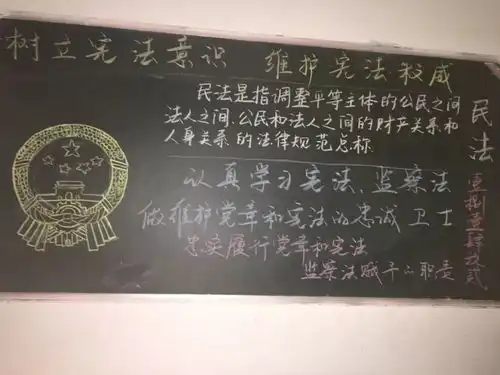 树立宪法意识 维护宪法权威
民法是指调整平等主体的公民之间
法人之间、公民和法人之间的财产关系和
人身关系的法律规范总称
认真学习宪法、监察法
做维护党章和宪法的忠诚卫士
忠实履行党章和宪法
监察法赋予的职责
民法